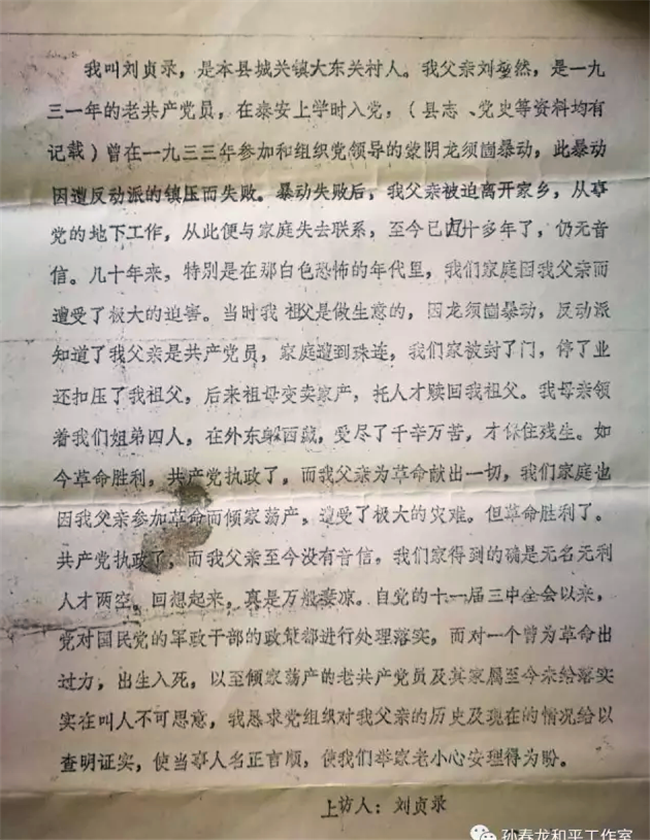 我叫刘贞录，是本县城关镇大东关村人。我父亲刘奎然，是一九
三一年的老共产党员，在泰安上学时入党，（县志、党史等资料均有
记载）曾在一九三三年参加和组织党领导的蒙阴龙须崮暴动，此暴动
因遭反动派的镇压而失败。暴动失败后，我父亲被迫离开家乡，从事
党的地下工作，从此便与家庭失去联系，至今已四十多年了，仍无音
信。几十年来，特别是在那白色恐怖的年代里，我们家庭因我父亲而
遭受了极大的迫害。当时我祖父是做生意的，因龙须崮暴动，反动派
知道了我父亲是共产党员，家庭遭到珠连，我们家被封了门，停了业
还扣压了我祖父，后来祖母变卖家产，托人才赎回我祖父。我母亲领
着我们姐弟四人，在外东躲西藏，受尽了千辛万苦，才保住残生。如
今革命胜利，共产党执政了，而我父亲为革命献出一切，我们家庭也
因我父亲参加革命而倾家荡产，遭受了极大的灾难。但革命胜利了。
共产党执政了，而我父亲至今没有音信，我们家得到的确是无名无利
人才两空。回想起来，真是万般凄凉。自党的十一届三中全会以来，
党对国民党的军政干部的政策都进行处理落实，而对一个曾为革命出
过力，出生入死，以至倾家荡产的老共产党员及其家属至今未给落实
实在叫人不可思意，我恳求党组织对我父亲的历史及现在的情况给以
查明证实，使当事人名正言顺，使我们举家老小心安理得为盼。
上访人：刘贞录
孙春龙和平工作室